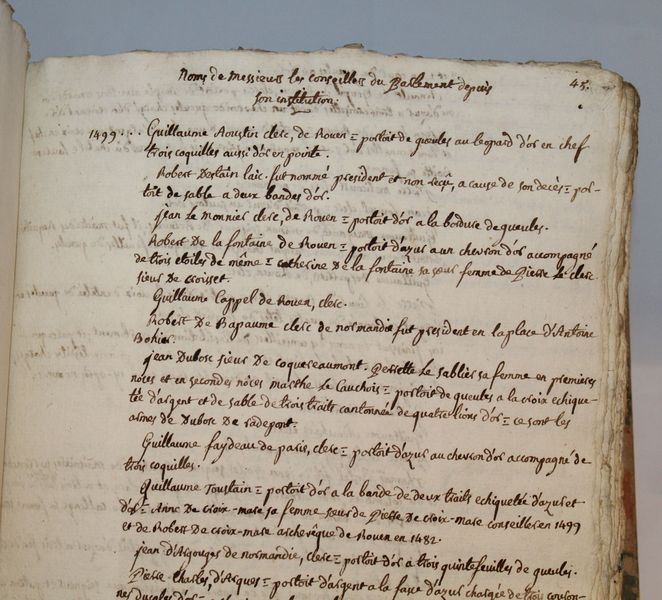 Noms de Messieurs les conseillers du Parlement depuis
45.
son institution.
1499... Guillaume Aoustin clerc, de Rouen = portoit de gueules au leopard d'or en chef
trois coquilles aussi d'or en pointe.
Robert Destain laic. fut nommé president et non reçû, a cause de son decès = por-
toit de sable a deux bandes d'or.
jean Le Monnier clerc, de Rouen = portoit d'or a la bordure de gueules.
Robert De la fontaine de Rouen = portoit d'azur a un chevron d'or accompagné
de trois etoiles de même = catherine De la fontaine sa seur femme de Pierre Le clerc
sieur De croisset.
Guillaume Cappel de Rouen, clerc.
Robert De Bapaume clerc de normandie fut president en la place d'Antoine
Bohier.
jean Dubosc sieur De coquereaumont. Perrette Le sablier sa femme en premieres
nôces et en secondes nôces marthe Le Cauchois = portoit de gueules a la croix echique-
tée d'argent et de sable de trois traits cantonnée de quatre lions d'or = ce sont les
armes de Dubosc De radepont.
Guillaume faydeau de paris, clerc = portoit d'azur au chevron d'or accompagné de
trois coquilles.
Guillaume Toustain = portoit d'or a la bande de deux traits echiquetée d'azur et
d'or = Anne De croix-mare sa femme seur de Pierre De croix-mare conseiller en 1499
et de Robert De croix-mare archevêque de Rouen en 1482.
jean d'Argouges de normandie, clerc = portoit d'or a trois quintefeuilles de gueules.
Pierre Charles d'Arques = portoit d'argent a la fasce d'azur chargée de trois couron-
nes ducales d'or =